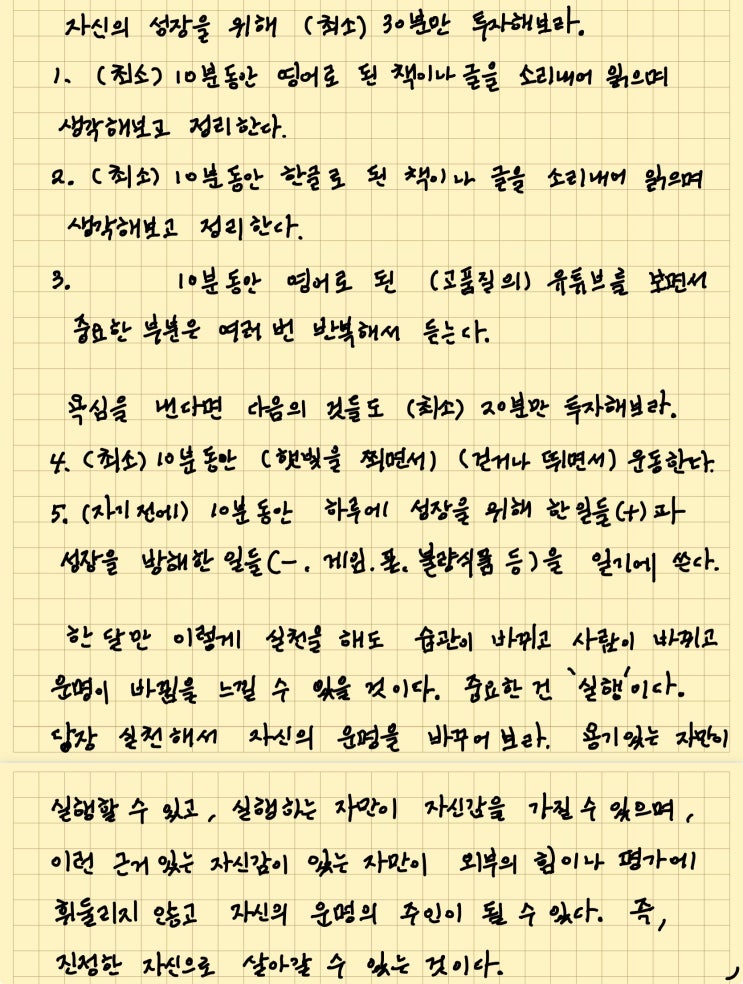 자신의 성장을 위해 (최소) 30분만 투자해보라.
1. (최소) 10분동안 영어로 된 책이나 글을 소리내어 읽으며
생각해보고 정리한다.
2. (최소) 10분동안 한글로 된 책이나 글을 소리내어 읽으며
생각해보고 정리한다.
3. 10분동안 영어로 된 (고품질의) 유튜브를 보면서
중요한 부분은 여러 번 반복해서 듣는다.
욕심을 낸다면 다음의 것들도 (최소) 20분만 투자해보라.
4. (최소) 10분동안 (햇빛을 쬐면서) (걷거나 뛰면서) 운동한다.
5. (자기 전에) 10분동안 하루에 성장을 위해 한 일들(+)과
성장을 방해한 일들(-. 게임. 폰. 불량식품 등)을 일기에 쓴다.
한 달만 이렇게 실천을 해도 습관이 바뀌고 사람이 바뀌고
운명이 바뀜을 느낄 수 있을 것이다. 중요한 건 '실행'이다.
당장 실천해서 자신의 운명을 바꾸어 보라. 용기있는 자만이
실행할 수 있고, 실행하는 자만이 자신감을 가질 수 있으며,
이런 근거 있는 자신감이 있는 자만이 외부의 힘이나 평가에
휘둘리지 않고 자신의 운명의 주인이 될 수 있다. 즉,
진정한 자신으로 살아갈 수 있는 것이다.